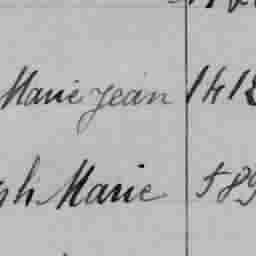 Marie Jean 1412
ph Marie 589